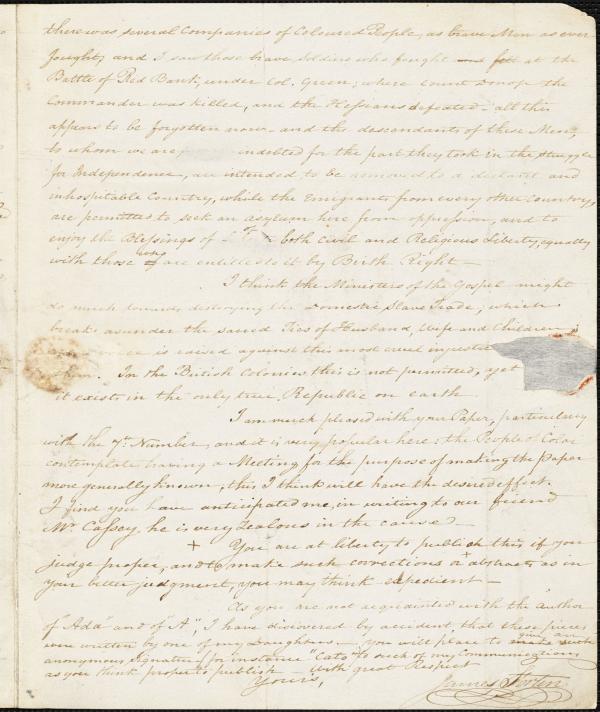 there was several Companies of Coloured People, as brave Men as ever
fought, and I saw those brave Soldiers who fought at the
Battle of Red Bank, under Col. Green, where Count Donop the
Commander was killed, and the Hessians defeated – all this
appears to be forgotten now – and the descendants of these Men,
to whom we are indebted for the part they took in the Struggle
for Independence, are intended to be removed to a distant and
inhospitable Country, while the Emigrants from every other Country,
are permitted to seek an asylum here from oppression, and to
enjoy the Blessings of both Civil and Religious Liberty, equally
with those who are entitled to it by Birth Right –
I think the Ministers of the Gospel might
do much towards destroying the Domestic Slave Trade, which
breaks asunder the sacred Ties of Husband, Wife and Children
voice is raised against this most cruel injustice
In the British Colonies this is not permitted, yet
it exists in the only true Republic on earth
I am much pleased with your Paper, particularly
with the 7th Number, and it is very popular here; the People of Color
contemplate having a Meeting for the purpose of making the Paper
more generally known, this, I think will have the desired effect.
I find you have anticipated me, in writing to our friend
Mr Cassey. he is very Zealous in the cause
+ You are at liberty to publish this if you
judge proper, and to make such corrections or + abstracts, as in
your better judgment, you may think expedient –
As you are not acquainted with the Author
of "Ada" and of "A", I have discovered by accident, that these pieces
were written by one of my Daughters. you will please to give any
anonymous signature for instance "Cato" to such of my Communications
as you think proper to publish with great Respect
Yours,
James Forten